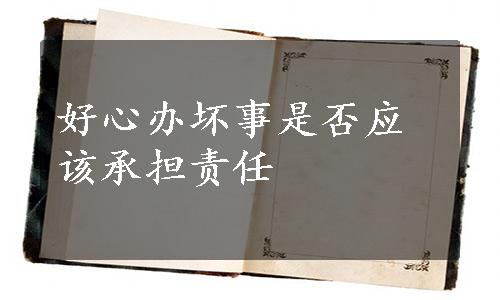 好心办坏事是否应
该承担责任